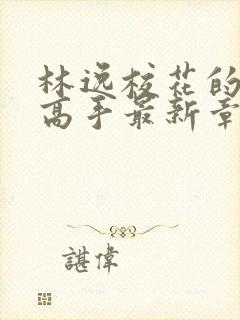 林逸校花的
高手最新章
諶偉